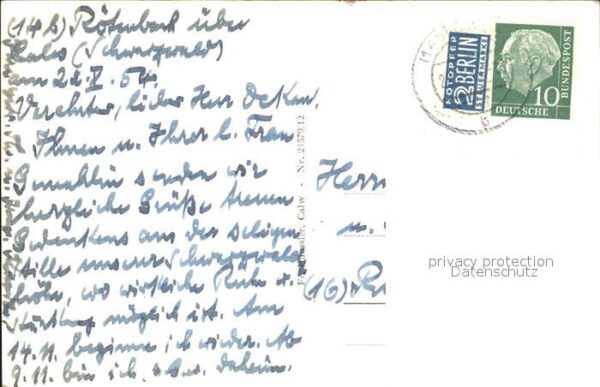 (14b) Rötenbach über
Calw (Schwarzwald)
am 22.X.54.
Verehrter, lieber Herr Dekan,
Ihnen u. Ihrer l. Frau
Gemahlin senden wir
herzliche Grüße treuen
Gedenkens aus der seligen
Stille unserer Schwarzwald
höhe, wo wirkliche Ruhe u.
Stärkung möglich ist. Am
14.11. beginne ich wieder. Ab
9.11. bin ich daheim.
Calw - Nr. 21579/12
NOTOPFER
2 BERLIN
STEUERMARKE
10
DEUTSCHE
BUNDESPOST
Herrn
u.
(16)
privacy protection
Datenschutz